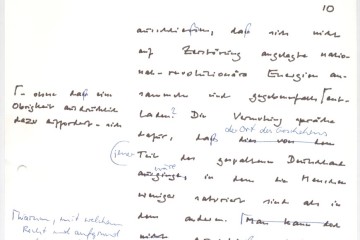 10
ausschließen, daß sich nicht
auf Zerstörung angelegte natio-
nal-revolutionäre Energien an-
sammeln und gegebenenfalls ent-
laden? Die Vermutung spräche
dafür, daß dies von dem
der Ort des Geschehens
jener Teil des gespaltenen Deutschland
wäre
ausginge, in dem die Menschen
weniger saturiert sind als in
dem anderen. Man kann das
nicht
⌈- ohne daß eine
Obrigkeit ausdrücklich
dazu auffordert - sich
Warum, mit welchem
Recht und aufgrund